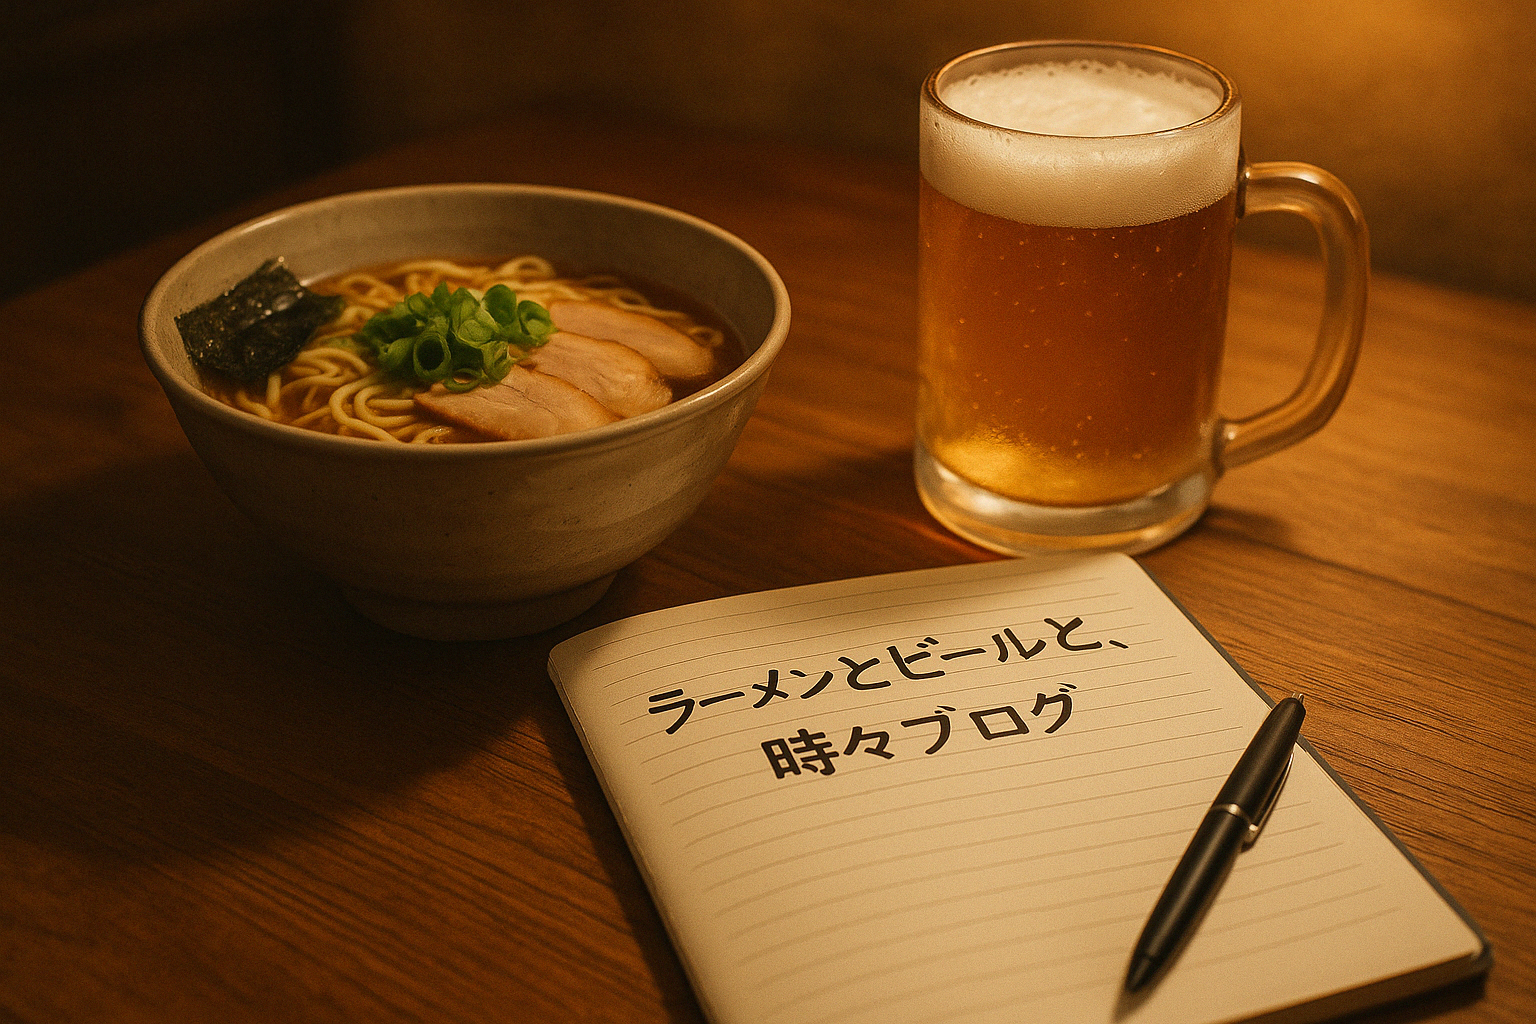 ラーメンとビールと、
時々ブログ